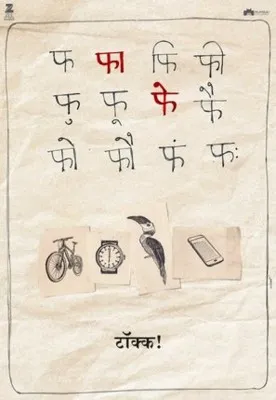 फ फा फि फी
फु फू फे फै
फो फौ फं फः
टॉक्क!